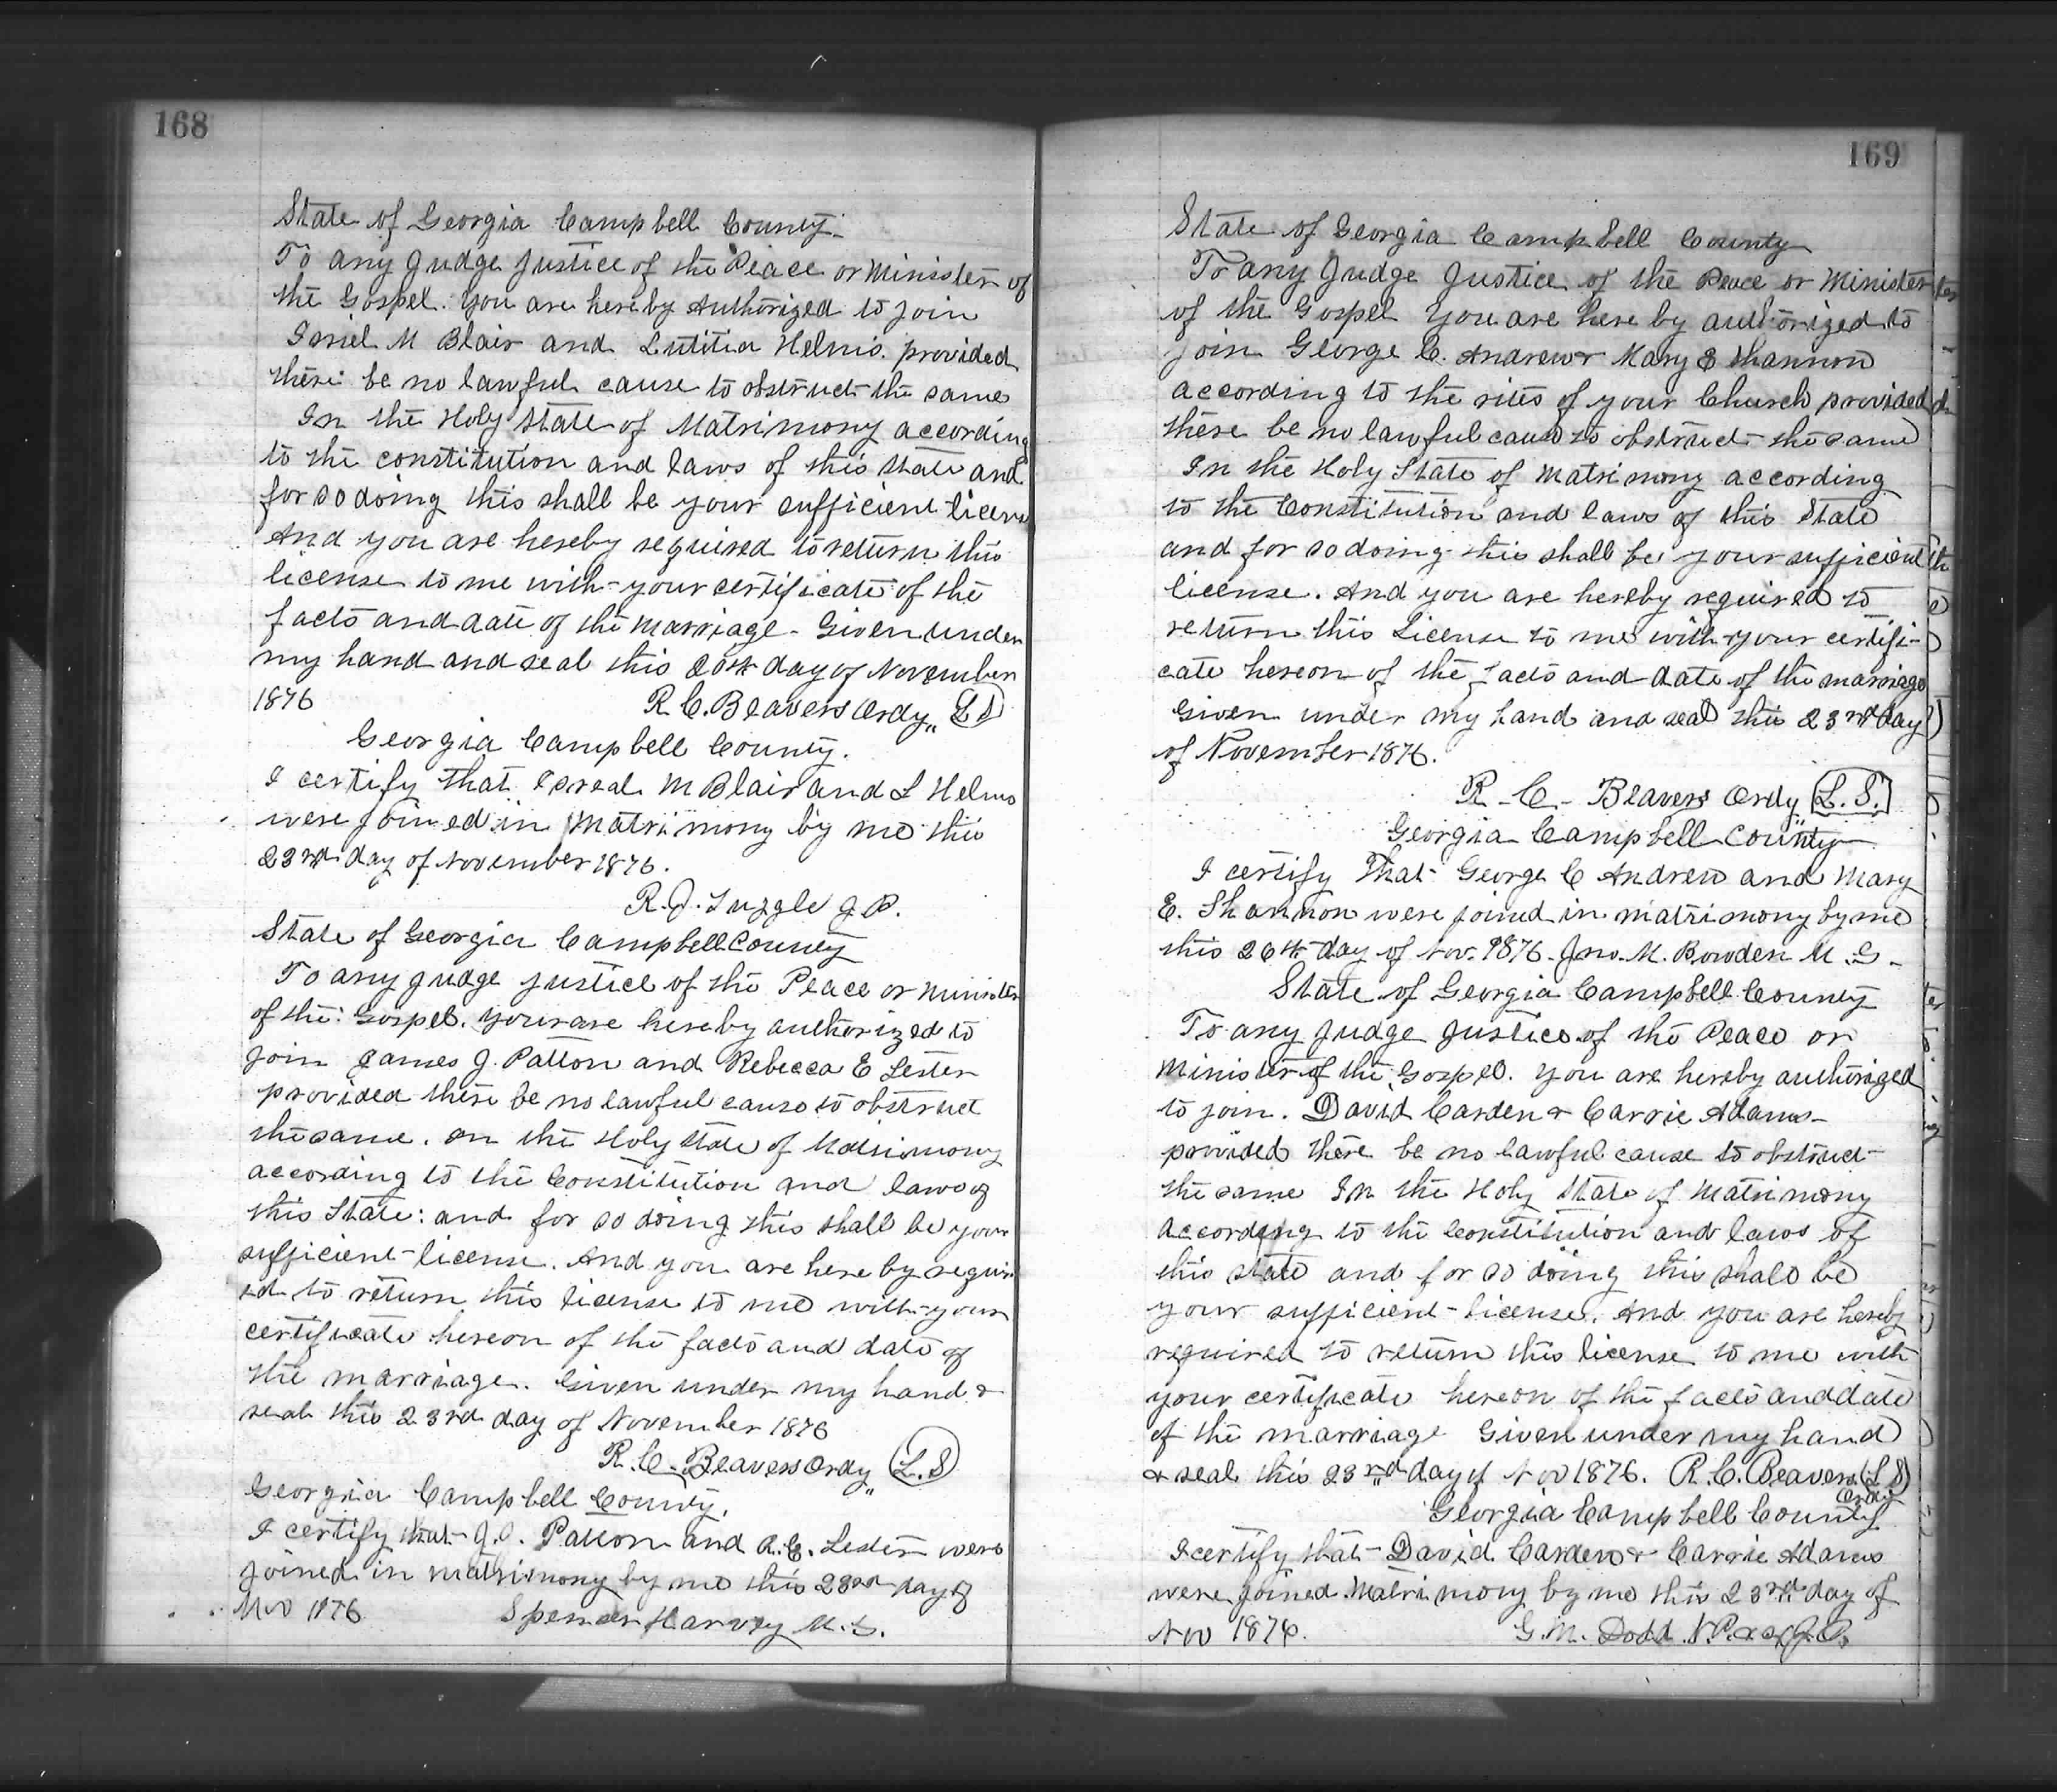 168
State of Georgia Campbell County.
To any Judge Justice of the Peace or Minister of
the Gospel. You are hereby Authorized to join
M Blair and Lutitia Helms. provided
there be no lawful cause to obstruct the same
In the Holy State of Matrimony according
to the constitution and laws of this State and
for so doing this shall be your sufficient licens
And you are hereby required to return this
license to me with your certificate of the
facts and date of the marriage. Given under
my hand and seal this 20th day of November
1876 R. C. Beavers Ordy,, L S
Georgia Campbell County.
I certify that M Blair and L Helms
were joined in Matrimony by me this
23rd day of November 1876.
R. J. Tuggle J P.
State of Georgia Campbell County
To any judge justice of the Peace or Minister
of the Gospel. You are hereby authorized to
join James J. Patton and Rebecca E Lester
provided there be no lawful cause to obstruct
the same. In the Holy State of Matrimony
according to the Constitution and laws of
this State: and for so doing this shall be your
sufficient license. And you are here by requir
ed to return this license to me with your
certificate hereon of the facts and date of
the marriage. Given under my hand &
seal this 23rd day of November 1876
R. C. Beavers Ordy,, L. S
Georgia Campbell County.
I certify that J. J. Patton and R. E. Lester were
joined in matrimony by me this 23rd day of
Nov 1876 Spencer Harvey M. G.
169
State of Georgia Campbell County
To any Judge Justice of the Peace or Minister
of the Gospel You are here by authorized to
join George C. Andrew & Mary E Shannon
according to the rites of your Church provided
there be no lawful cause to obstruct the same
In the Holy State of Matrimony according
to the Constitution and laws of this State
and for so doing this shall be your sufficient
license. And you are hereby required to
return this License to me with your certifi-
cate hereon of the facts and date of the marriage
Given under my hand and seal this 23rd day
of November 1876.
R. C. Beavers Ordy,, L. S.
Georgia Campbell County
I certify That George C Andrew and Mary
E. Shannon were joined in matrimony by me
this 26th day of Nov. 1876. Jno. M. Bowden M. G.
State of Georgia Campbell County
To any Judge Justice of the Peace or
Minister of the Gospel. You are hereby authorized
to join. David Carden & Carrie Adams
provided there be no lawful cause to obstruct
the same In the Holy State of Matrimony
according to the Constitution and laws of
this state and for so doing this shall be
your sufficient license. And you are hereby
required to return this license to me with
your certificate hereon of the facts and date
of the marriage Given under my hand
& seal this 23rd day of Nov 1876. R. C. Beavers (L S)
Ordy
Georgia Campbell County
I certify that David Carden & Carrie Adams
were joined Matrimony by me this 23rd day of
Nov 1876. G. M. Dodd N. P. & ex J. P.